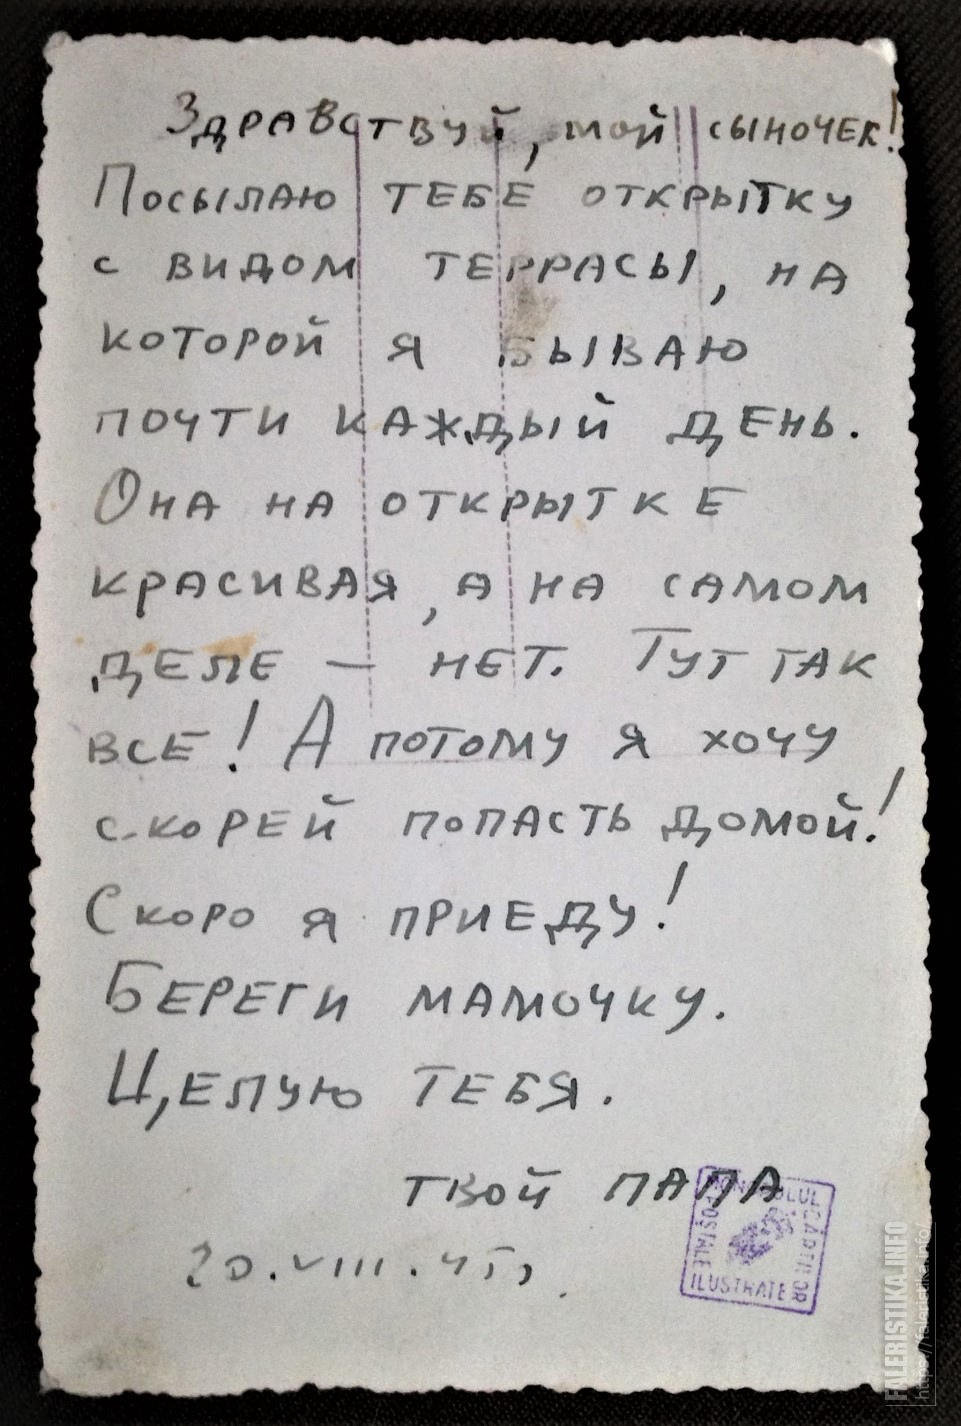 Здравствуй, мой сыночек!
Посылаю тебе открытку
с видом террасы, на
которой я бываю
почти каждый день.
Она на открытке
красивая, а на самом
деле — нет. Тут так
все! А потому я хочу
скорей попасть домой!
Скоро я приеду!
Береги мамочку.
Целую тебя.
твой папа
20.VIII.45
POȘTALE
ILUSTRATE
CĂRȚILOR
FALERISTIKA.INFO
https://faleristika.info/